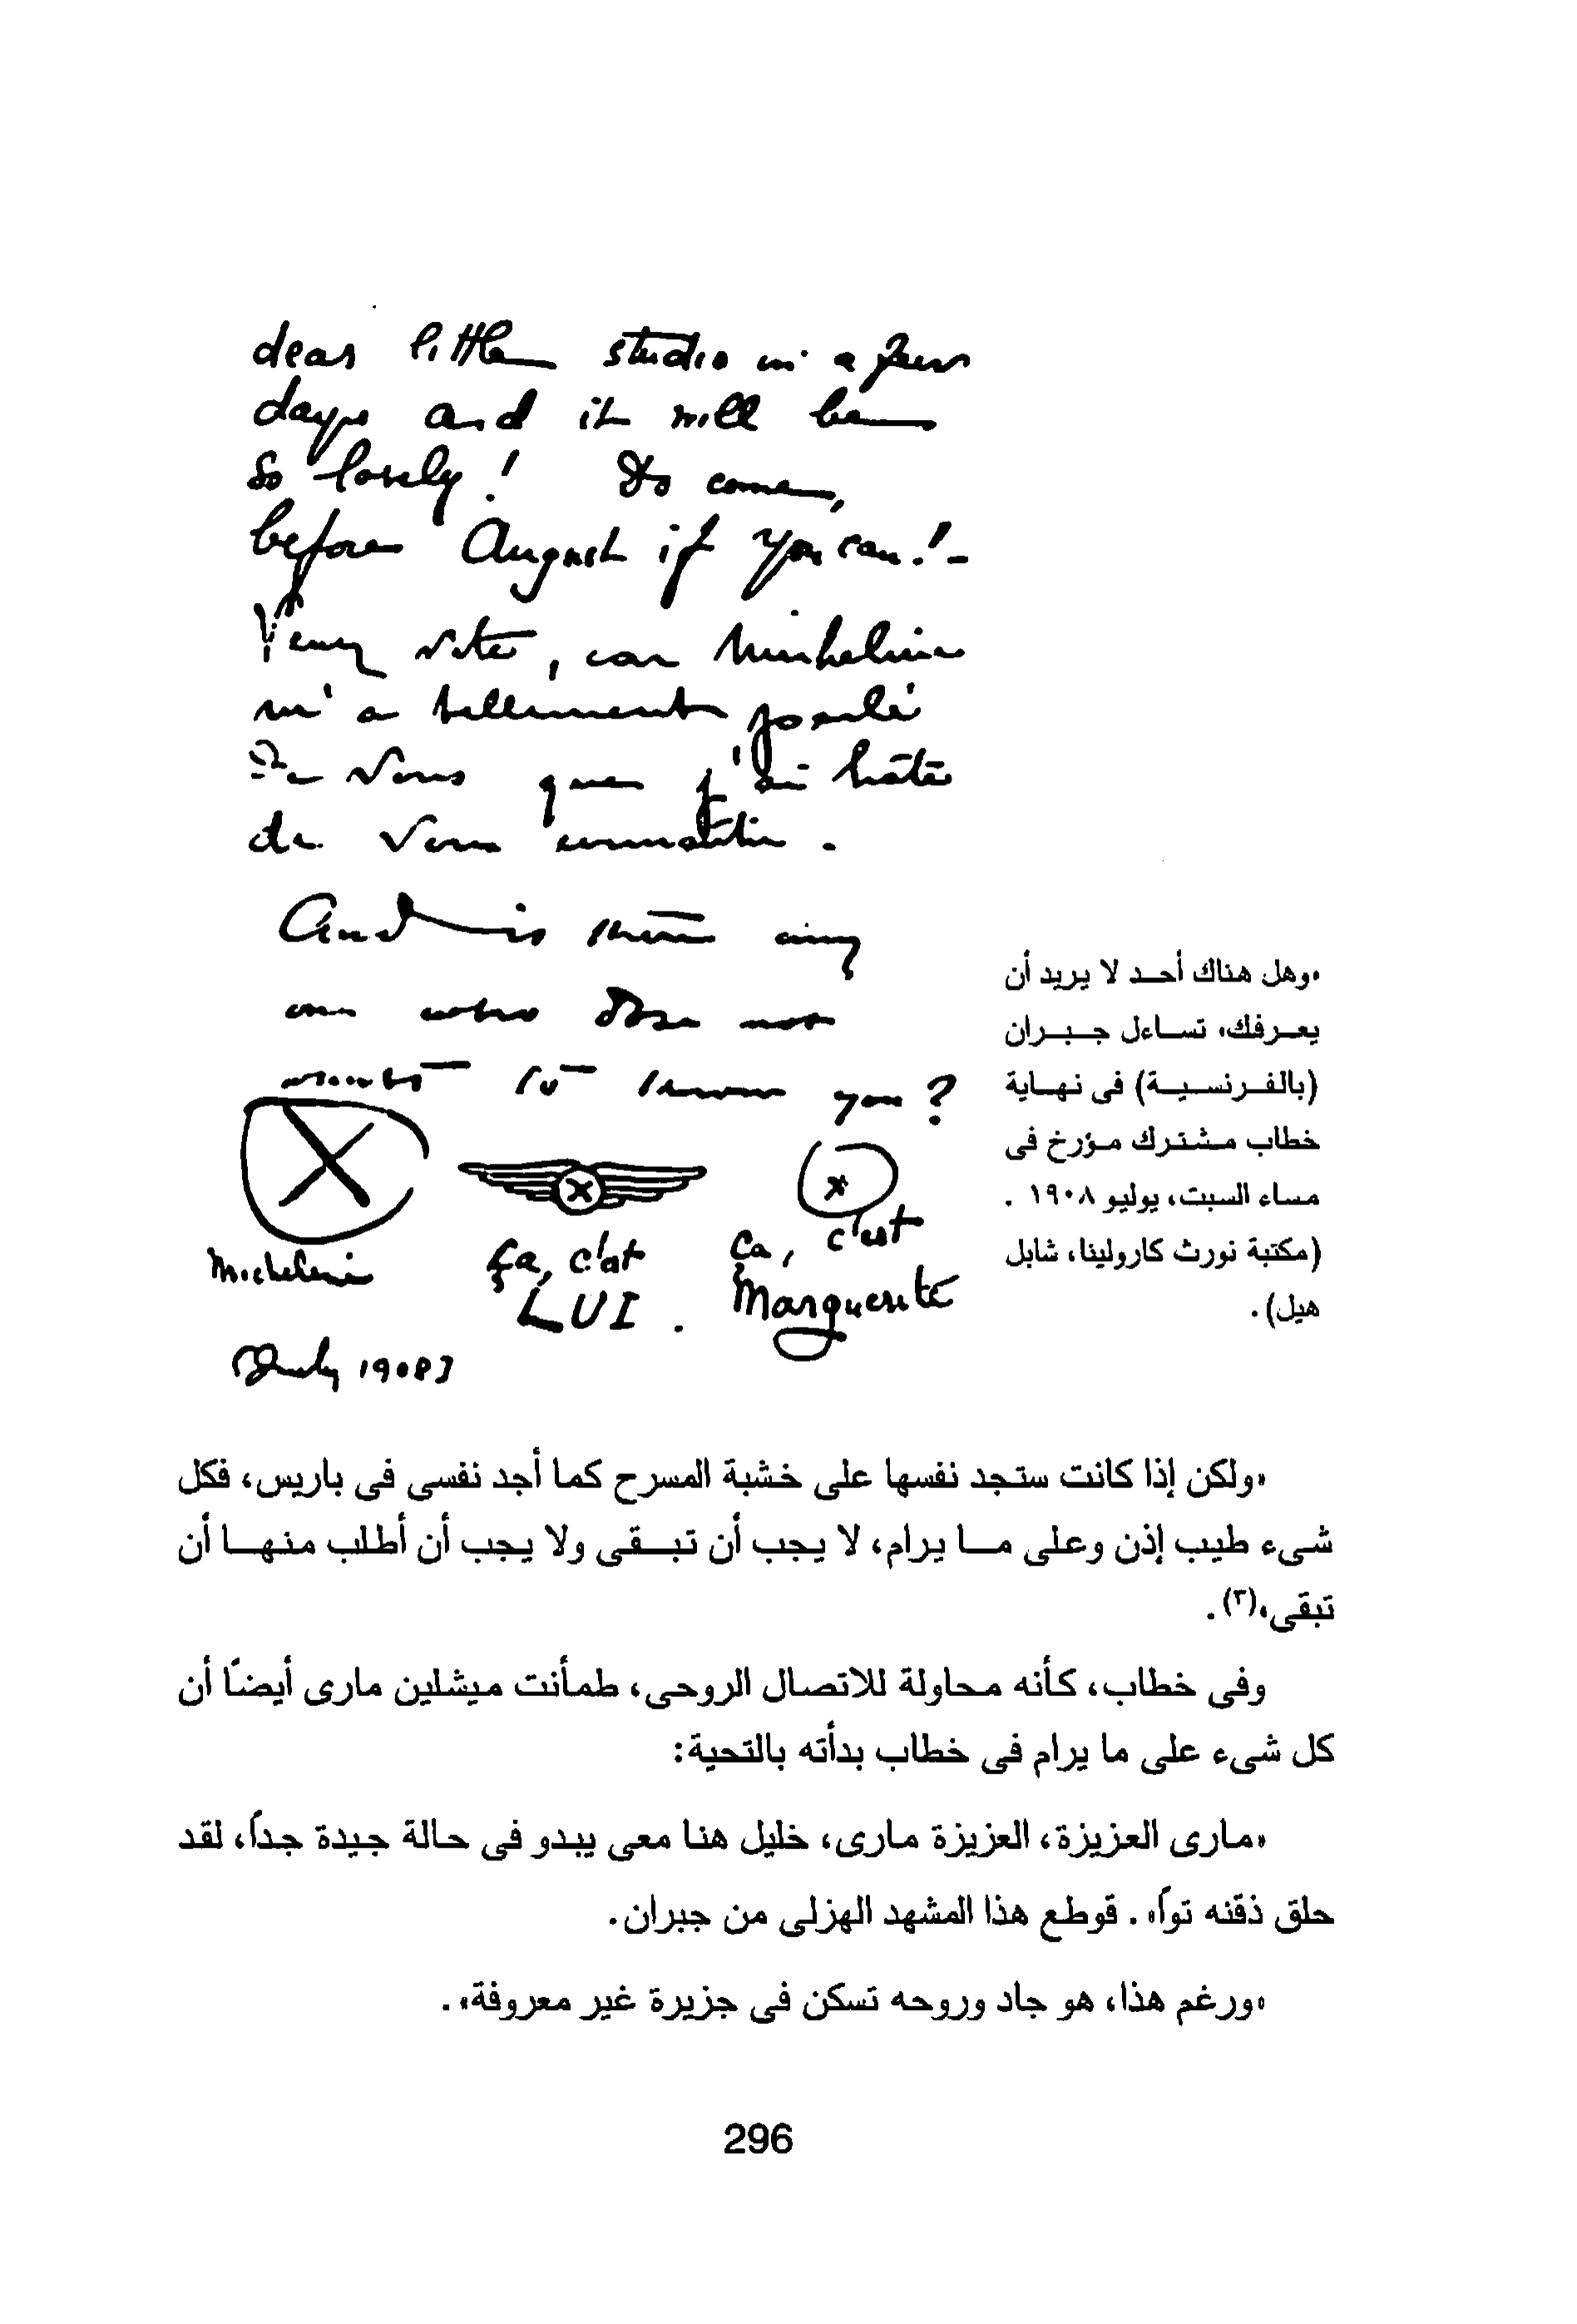 dear little studio in a few
days and it will be
so lovely! Do come,
before August if you can! -
Venez vite, car Micheline
m'a tellement parlé
de vous que j'ai hâte
de vous connaître.
And is there any
one who does not
wants to know you?
Micheline
Ça, c'est
LUI.
Ça, c'est
Marguerite
[July 1908]
«وهل هناك أحد لا يريد أن
يعرفك» تساءل جبران
(بالفرنسية) فى نهاية
خطاب مشترك مؤرخ فى
مساء السبت، يوليو ١٩٠٨ .
(مكتبة نورث كارولينا، شابل
هيل).
«ولكن إذا كانت ستجد نفسها على خشبة المسرح كما أجد نفسى فى باريس، فكل
شىء طيب إذن وعلى ما يرام، لا يجب أن تبقى ولا يجب أن أطلب منها أن
تبقى»(٣).
وفى خطاب، كأنه محاولة للاتصال الروحى، طمأنت ميشلين مارى أيضًا أن
كل شىء على ما يرام فى خطاب بدأته بالتحية:
«مارى العزيزة، العزيزة مارى، خليل هنا معى يبدو فى حالة جيدة جداً، لقد
حلق ذقنه تواً» . قوطع هذا المشهد الهزلى من جبران.
«ورغم هذا، هو جاد وروحه تسكن فى جزيرة غير معروفة» .
296